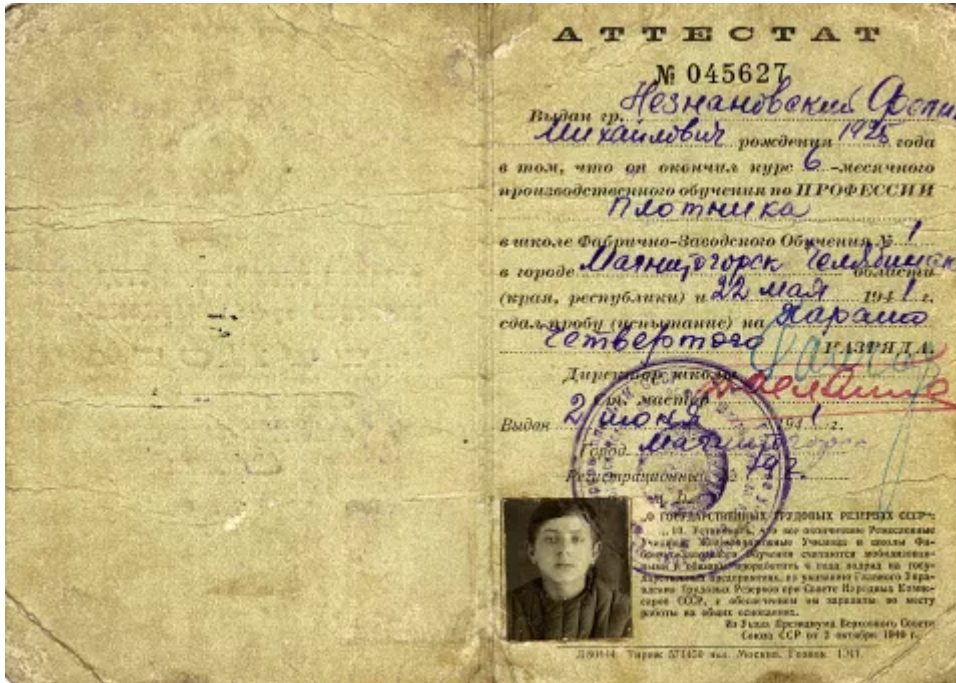 АТТЕСТАТ
№ 045627
Выдан гр. Незнановский
Михайлович рождения 1925 года
в том, что он окончил курс 6-месячного
производственного обучения по ПРОФЕССИИ
Плотника
в школе Фабрично-Заводского Обучения № 1
в городе Магнитогорск Челябинск области
(края, республики) и 22 мая 1941 г.
сдал пробу (испытание) на Харашо
Четвертого РАЗРЯДА.
Директор школы
Ст. мастер
Выдан 2 июня 1941 г.
Город Магнитогорск
Регистрационный №
„О ГОСУДАРСТВЕННЫХ ТРУДОВЫХ РЕЗЕРВАХ СССР“:
„... 10. Установить, что все окончившие Ремесленные
Училища, Железнодорожные Училища и школы Фа-
брично-Заводского Обучения считаются мобилизован-
ными и обязаны проработать 4 года подряд на госу-
дарственных предприятиях, по указанию Главного Упра-
вления Трудовых Резервов при Совете Народных Комис-
саров СССР, с обеспечением им зарплаты по месту
работы на общих основаниях.
Из Указа Президиума Верховного Совета
Союза ССР от 2 октября 1940 г.
Тираж экз. Москва. Гознак. 1941.